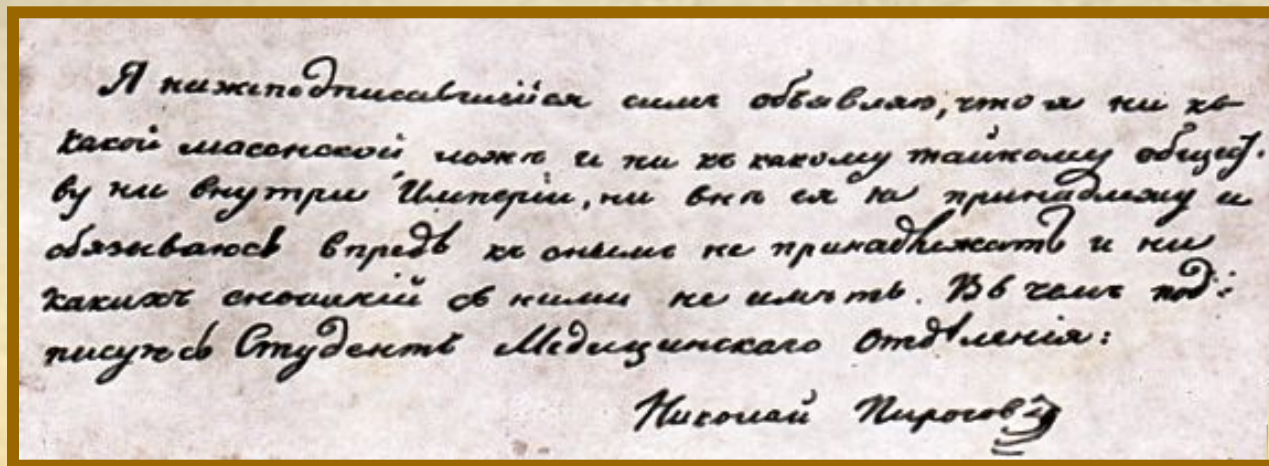 Я нижеподписавшійся симъ объявляю, что я ни къ
какой масонской ложѣ и ни къ какому тайному общест-
ву ни внутри Имперіи, ни внѣ ея не принадлежу и
обязываюсь впредь къ онымъ не принадлежать и ни
какихъ сношеній съ ними не имѣть. Въ чемъ под:
писуюсь Студентъ Медицинскаго Отдѣленія:
Николай Пироговъ